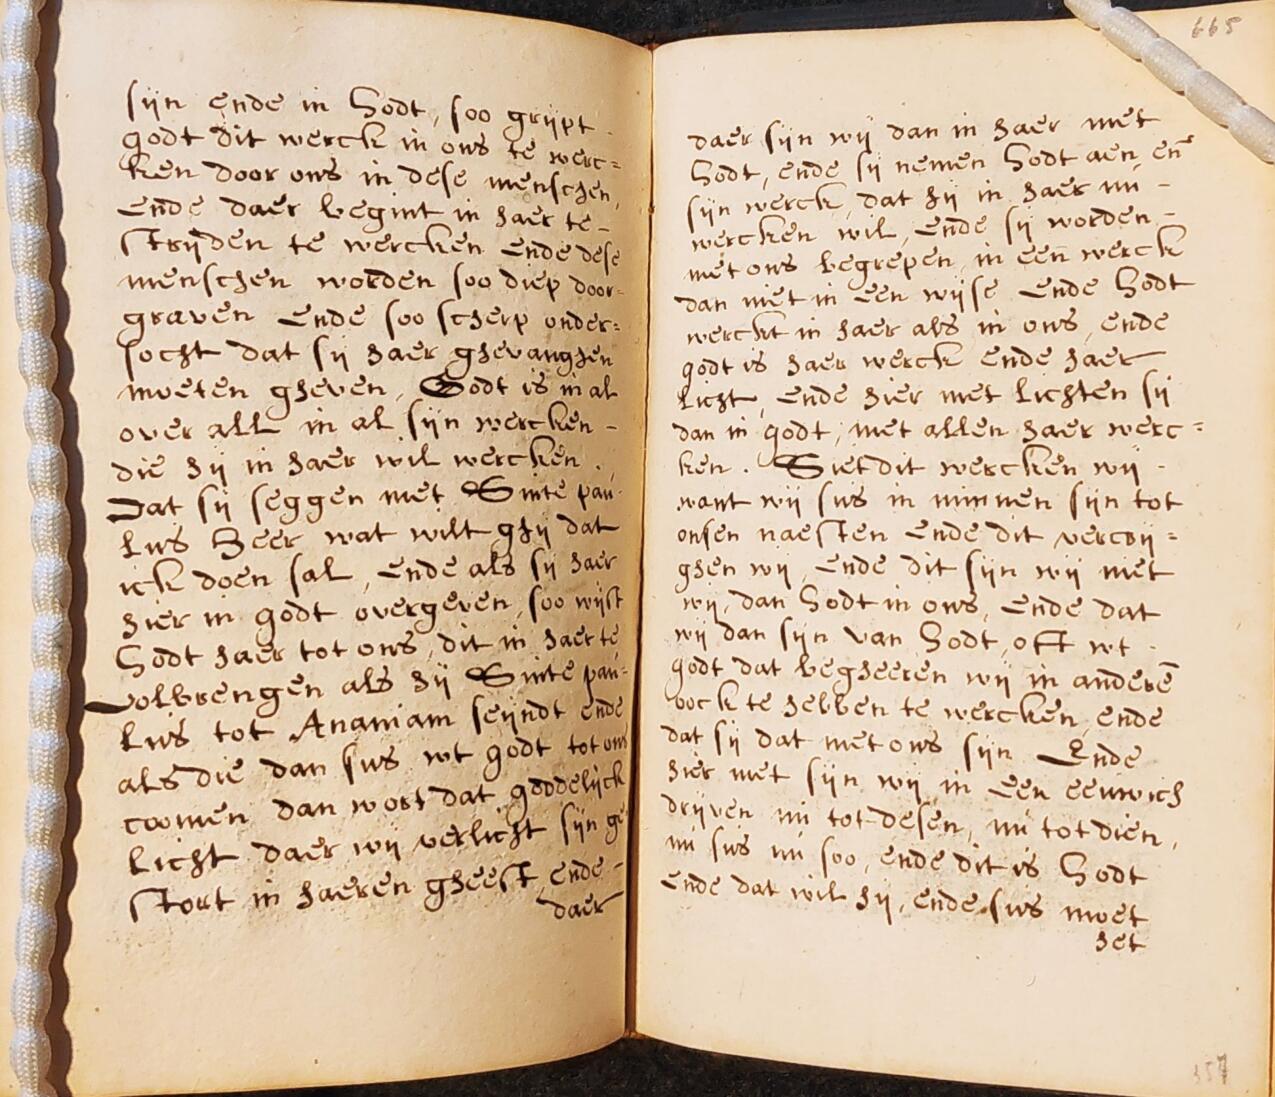 sijn ende in Godt, soo grijpt
godt dit werck in ons te werc=
ken door ons in dese menschen,
ende daer begint in haer te-
strijden te wercken ende dese
menschen worden soo diep door=
graven ende soo scherp onder=
socht dat sij haer ghevanghen
moeten gheven, Godt is in al
over all in al sijn wercken-
die hij in haer wil wercken.
Dat sij seggen met Sinte pau-
lus Heer wat wilt ghij dat
ick doen sal, ende als sij haer
hier in godt overgeven, soo wijst
Godt haer tot ons, dit in haer te
volbrengen als hij Sinte pau-
lus tot Ananiam seijndt ende
als die dan sus wt godt tot ons
coomen dan wort dat goddelijck
licht daer wij verlicht sijn ge
stort in haeren gheest, ende-
daer
665
daer sijn wij dan in haer met
Godt, ende sij nemen Godt aen, en̄
sijn werck, dat hij in haer nu-
wercken wil, ende sij worden-
met ons begrepen in een werck
dan niet in een wijse ende Godt
werckt in haer als in ons, ende
godt is haer werck ende haer
licht, ende hier met lichten sij
dan in godt, met allen haer werc=
ken. Siet dit wercken wij-
want wij sus in minnen sijn tot
onsen naesten ende dit vercrij=
ghen wij, ende dit sijn wij niet
wij, dan Godt in ons, ende dat
wij dan sijn van Godt, oft wt-
godt dat begheeren wij in anderē
oock te hebben te wercken, ende
dat sij dat met ons sijn Ende
hier met sijn wij in een eeuwich
drijven nu tot desen, nu tot dien,
nu sus nu soo, ende dit is Godt
ende dat wil hij, ende sus moet
het
357